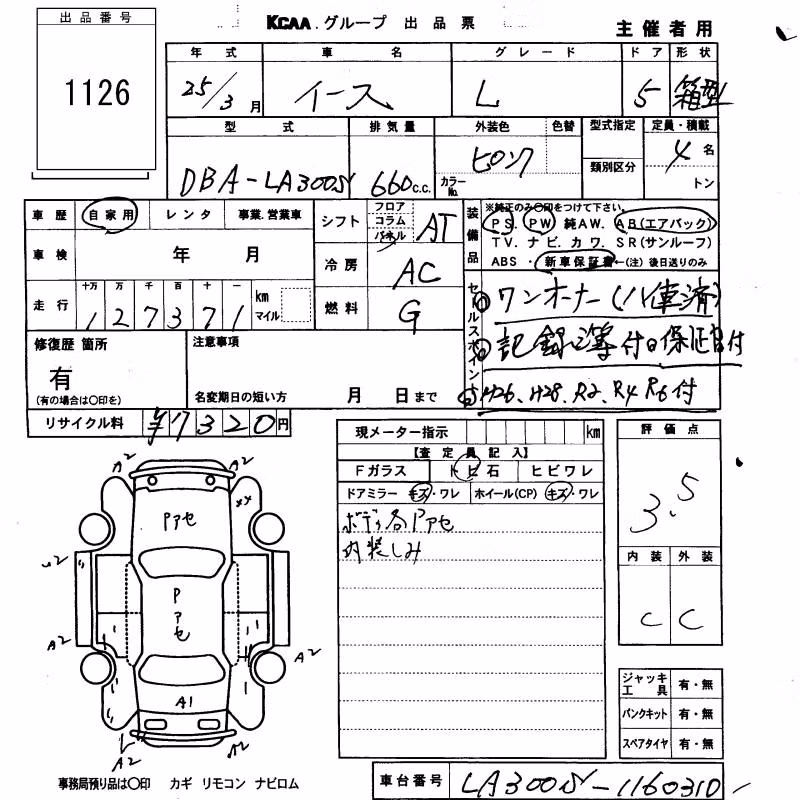 出品番号
1126
KCAA.グループ 出品票
主催者用
年式 車名 グレード ドア 形状
25/3月 イース L 5 箱型
型式 排気量 外装色 色替 型式指定 定員・積載
DBA-LA300S 660c.c. カラーNo. 類別区分 4名
トン
車歴 自家用 レンタ 事業.営業車
シフト フロア コラム パネル AT
装備品 ※純正のみ○印をつけて下さい。
PS. PW 純AW. AB(エアバック)
TV. ナビ. カワ. SR(サンルーフ)
ABS ・ 新車保証書←(注) 後日送りのみ
車検 年 月
冷房 AC
走行 十万 万 千 百 十 一 km マイル
1 2 7 3 7 1
燃料 G
セールスポイント
ワンオーナー(ハ車済)
記録簿付 保証書付
H26、H28、R2、R4 R6付
修復歴 箇所
有
(有の場合は○印を)
注意事項
名変期日の短い方 月 日まで
リサイクル料 ¥7320円
現メーター指示 km
【査定員記入】
Fガラス トビ石 ヒビワレ
ドアミラー キズ・ワレ ホイール(CP) キズ・ワレ
ボディ各Pアセ
内装しみ
評価点
3.5
内装 外装
C C
ジャッキ工具 有・無
パンクキット 有・無
スペアタイヤ 有・無
A2 A2
Pアセ
××
A2
Pアセ
A2 A2
A1
A2 A2
事務局預り品は○印 カギ リモコン ナビロム
車台番号 LA300S-1160310